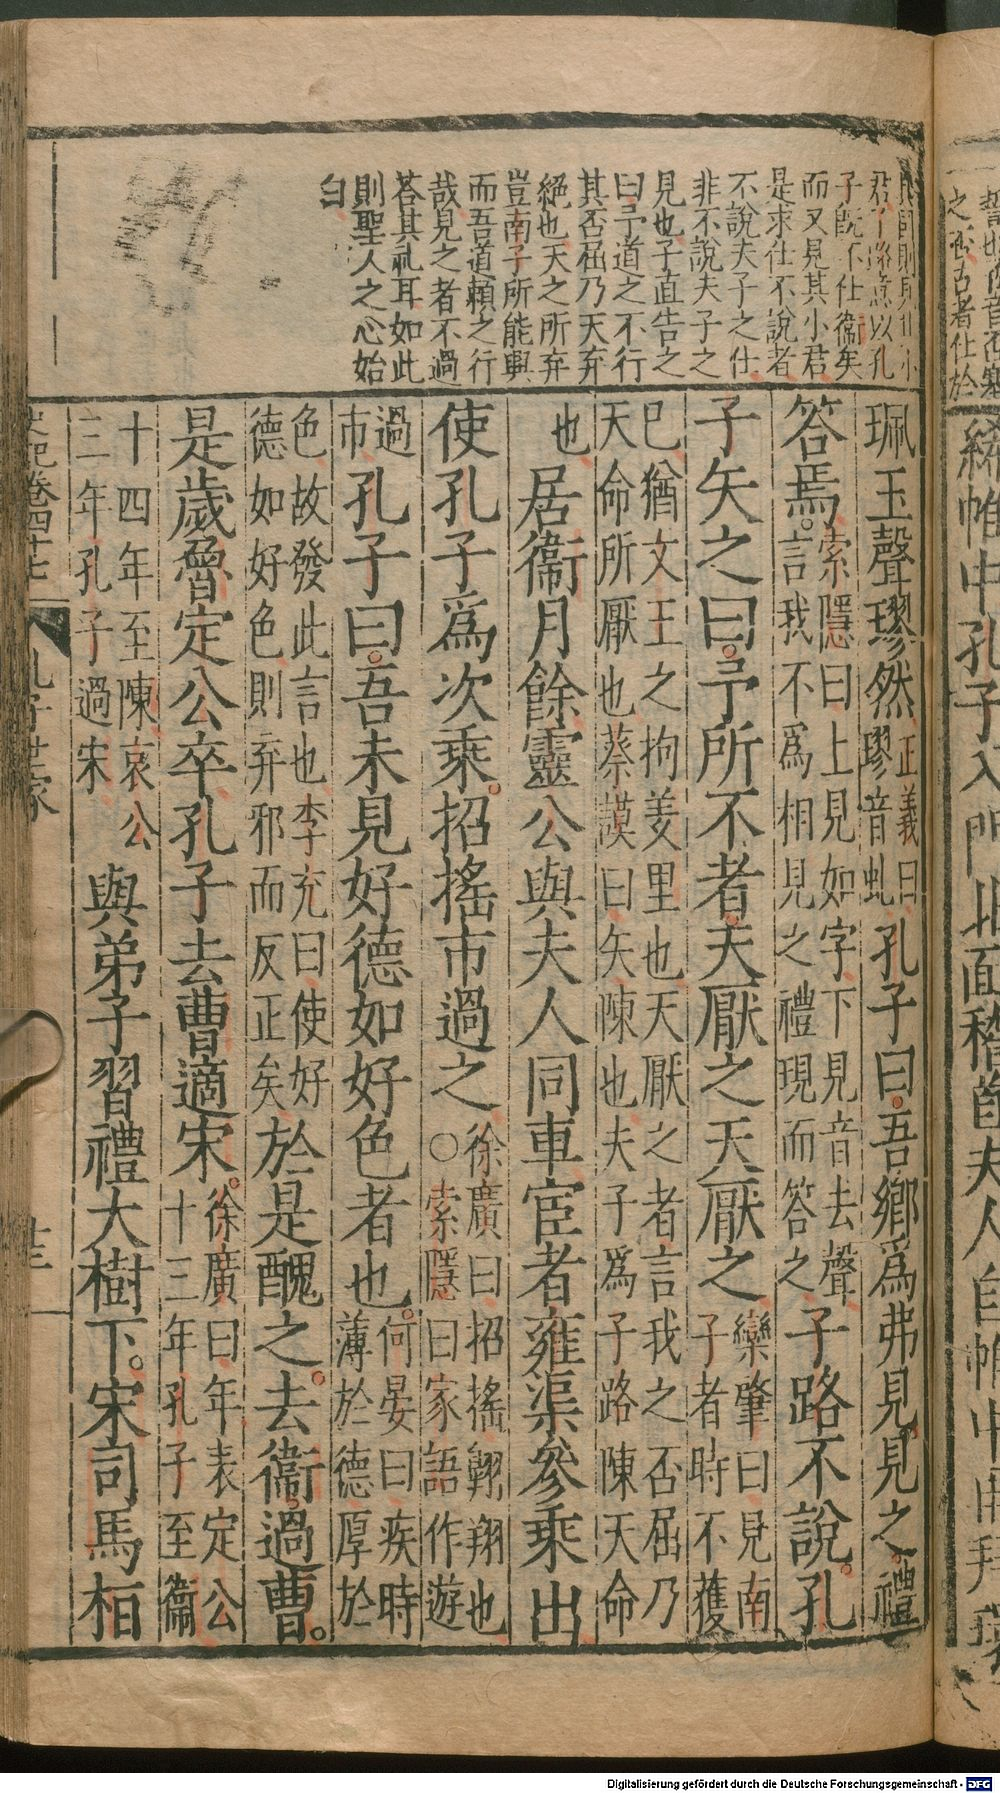 君子
子既不仕衞矣
而又見其小君
是求仕不說者
不說夫子之仕
非不說夫子之
見也子直告之
曰予道之不行
其否屈乃天弃
絕也天之所弃
豈南子所能興
而吾道賴之行
哉見之者不過
荅其礼耳如此
則聖人之心始
白
珮玉聲璆然正義曰璆音虬孔子曰吾鄉爲弗見見之禮
答焉索隱曰上見如字下見音去聲言我不爲相見之禮現而答之子路不說孔
子矢之曰予所不者天厭之天厭之欒肇曰見南子者時不獲
巳猶文王之拘羑里也天厭之者言我之否屈乃天命所厭也蔡謨曰矢陳也夫子爲子路陳天命
也居衞月餘靈公與夫人同車宦者雍渠參乘出
使孔子爲次乘招搖市過之○徐廣曰招搖翺翔也索隱曰家語作遊
過市孔子曰吾未見好德如好色者也何晏曰疾時薄於德厚於
色故發此言也李充曰使好德如好色則弃邪而反正矣於是醜之去衞過曹
是歲魯定公卒孔子去曹適宋徐廣曰年表定公十三年孔子至衞
十四年至陳哀公三年孔子過宋與弟子習禮大樹下宋司馬桓
史記卷四十七 孔子世家 十三
之 古者仕於
絺帷中孔子入門北面稽首夫人自帷中再拜
Digitalisierung gefördert durch die Deutsche Forschungsgemeinschaft - DFG